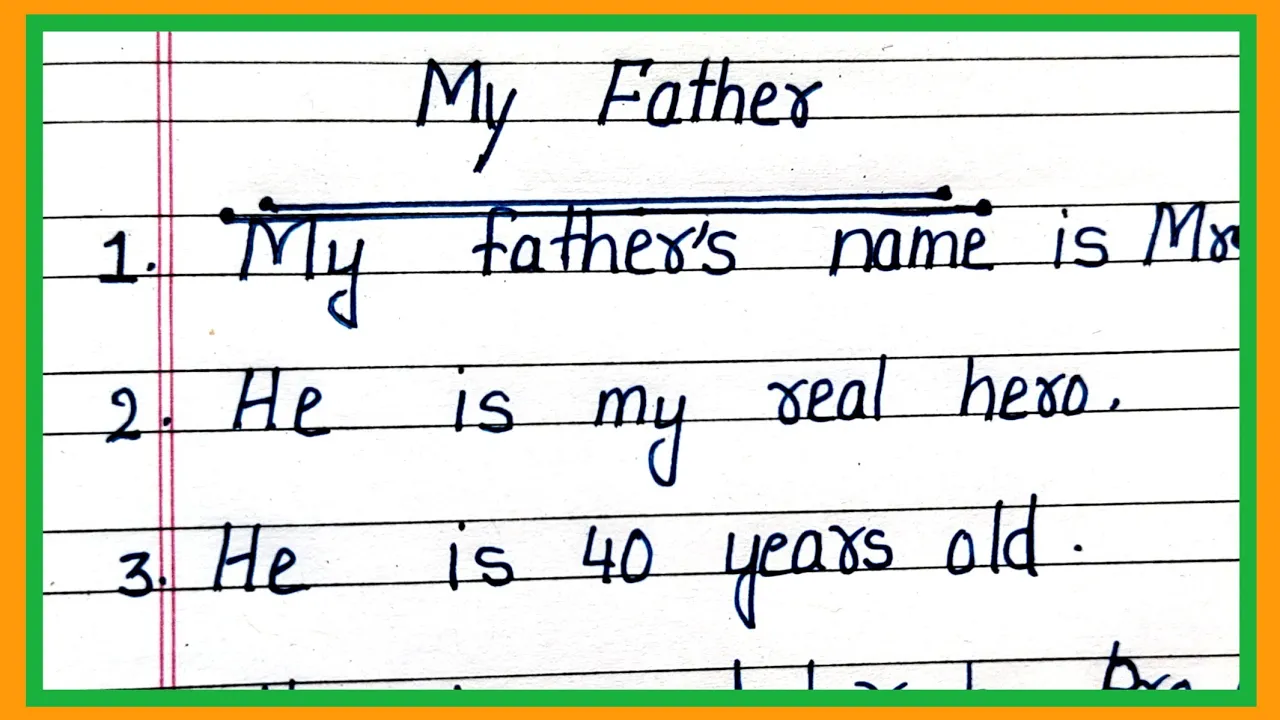 My Father
1. My father's name is Mr
2. He is my real hero.
3. He is 40 years old.